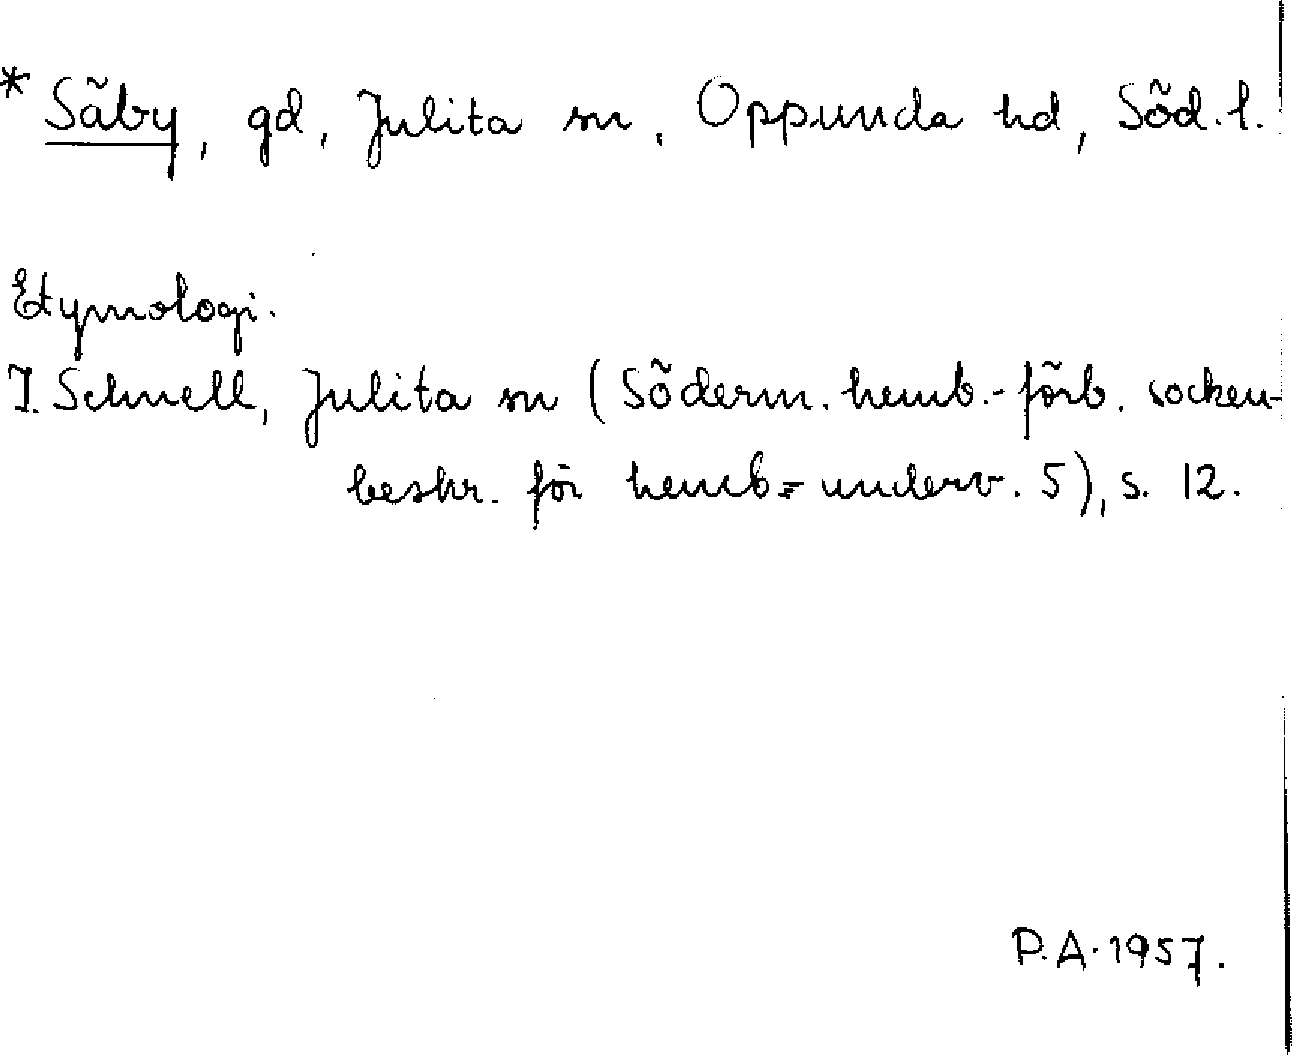 * Säby, gd, Julita sn, Oppunda hd, Söd. l.
Etymologi.
I. Schnell, Julita sn (Söderm. hemb.-förb. socken-
beskr. för hemb.-underv. 5), s. 12.
P.A. 1957.